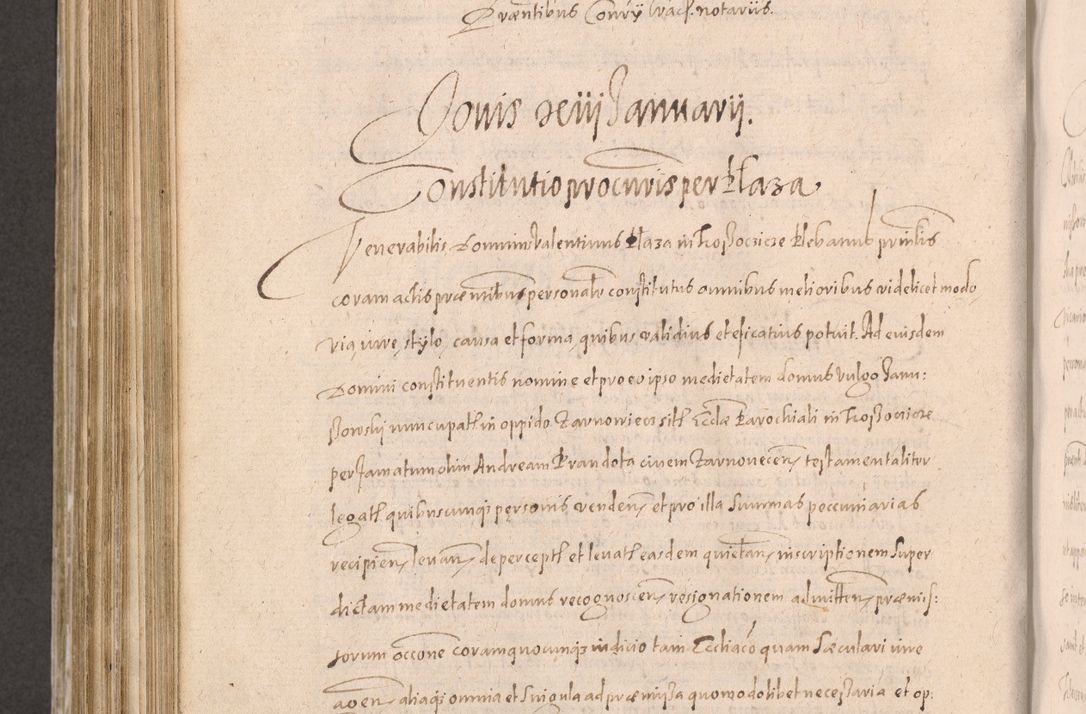 Præntibus Conry Crac. notariis.
Jouis xiiij Januarij.
Constitutio procuris per Płaza
Venerabilis Dominus Valentinus Płaza in Koßoczicze Plebanus principlis
coram actis præsentibus personalr constitutus omnibus melioribus videlicet modo
via, iure, stylo, causa et forma, quibus validius et eficatius potuit. Ad eiusdem
Domini constituentis nomine et pro eo ipso medietatem domus vulgo Janu:
ßowskj nuncupatt in oppido Zarnowiecz sitt Ecclæ Parochiali in Koßoczicze
per famatum olim Andream Prandota ciuem Zarnouecen, testamentaliter
legatt quibuscunqz personis venden, et pro illa Summas peccuniarias
recipien, leuan, de perceptt et leuatt easdem quietan, inscriptionem super
dictam medietatem domus recognoscen, resignationem admitten, præmis:
sorum occone coram quocunqz iudicio tam Eccliaco quam sæculari iure
agen, aliaqz omnia et singula ad præmißa quomodolibet neceßaria et op: